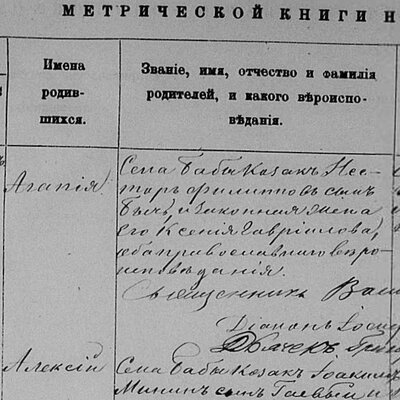 МЕТРИЧЕСКОЙ КНИГИ Н
Имена
родив-
шихся.
Званіе, имя, отчество и фамилія
родителей, и какого вѣроиспо-
вѣданія.
Агапія
Села Бабы Козакъ Нес-
торъ Филипповъ сынъ
Бычъ, и законная жена
его Ксенія Гавріилова,
оба православнаго веро-
исповѣданія.
Священникъ Васи
Діаконъ Іосиф
Дьячекъ
Алексій
Села Бабы Козакъ Іоакимъ
Мининъ сынъ